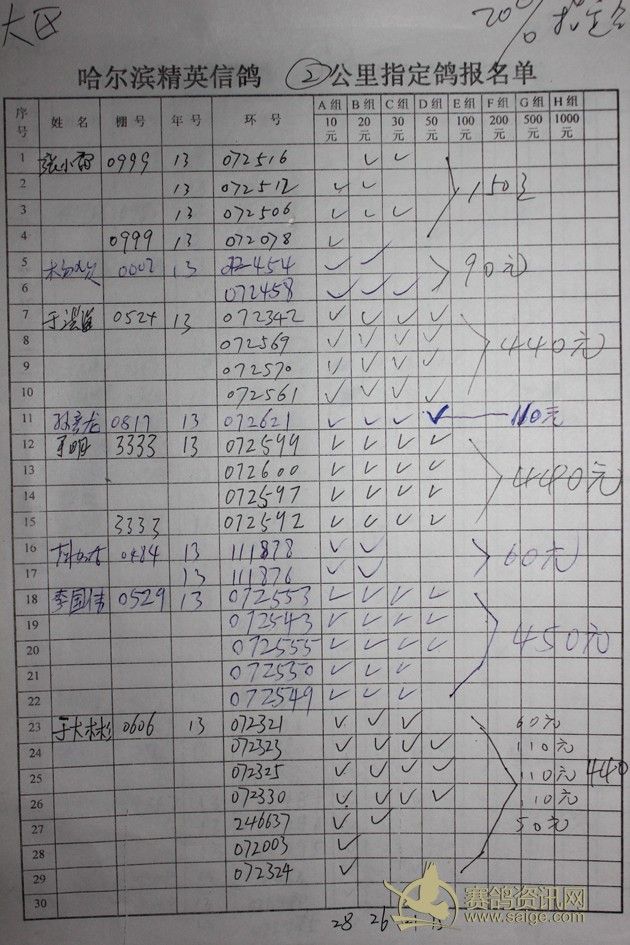 大区 20% 指定
哈尔滨精英信鸽 ② 公里指定鸽报名单
序号 姓名 棚号 年号 环号 A组10元 B组20元 C组30元 D组50元 E组100元 F组200元 G组500元 H组1000元
1 张小雷 0999 13 072516 ✓ ✓
2 13 072512 ✓ ✓ 150元
3 13 072506 ✓ ✓ ✓
4 0999 13 072078 ✓
5 0002 13 072454 ✓ ✓ 90元
6 072458 ✓ ✓ ✓
7 0524 13 072342 ✓ ✓ ✓ ✓
8 072569 ✓ ✓ ✓ ✓ 440元
9 072570 ✓ ✓ ✓ ✓
10 072561 ✓ ✓ ✓ ✓
11 孙彦龙 0817 13 072621 ✓ ✓ ✓ ✓ 110元
12 3333 13 072599 ✓ ✓ ✓ ✓
13 072600 ✓ ✓ ✓ ✓ 440元
14 072597 ✓ ✓ ✓ ✓
15 3333 072592 ✓ ✓ ✓ ✓
16 0484 13 111878 ✓ ✓ 60元
17 13 111876 ✓ ✓
18 李国伟 0529 13 072553 ✓ ✓ ✓ ✓
19 072543 ✓ ✓ ✓ ✓
20 072555 ✓ ✓ ✓ ✓ 450元
21 072550 ✓ ✓ ✓
22 072549 ✓ ✓ ✓
23 于大彬 0606 13 072321 ✓ ✓ ✓ 60元
24 072323 ✓ ✓ ✓ ✓ 110元
25 072325 ✓ ✓ ✓ ✓ 110元 440
26 072330 ✓ ✓ ✓ ✓ 110元
27 246637 ✓ ✓ 50元
28 072003 ✓
29 072324 ✓
30
28 26
赛鸽资讯网
www.saige.com